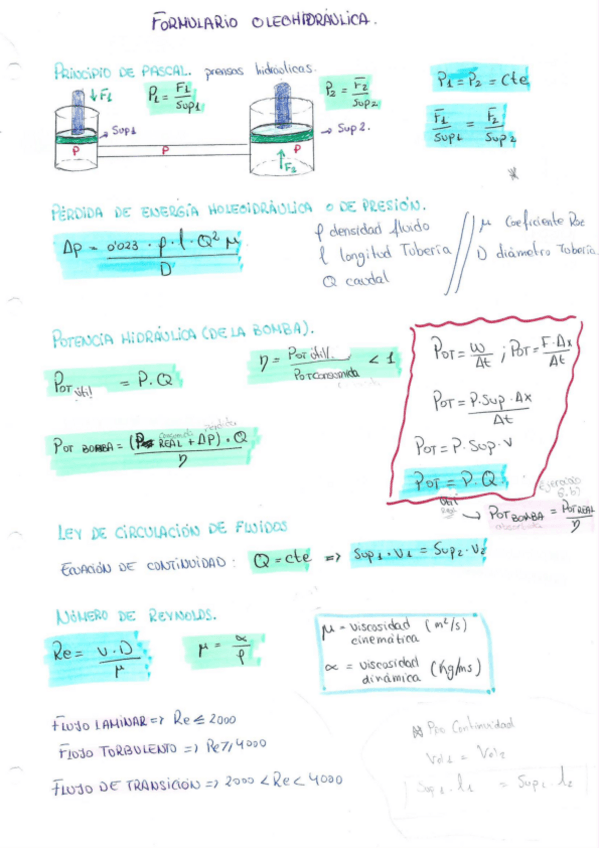 FORMULARIO OLEOHIDRÁULICA.
PRINCIPIO DE PASCAL. prensas hidráulicas.
↓F1
P1 = F1/Sup1
P2 = F2/Sup2
P1 = P2 = cte
→ Sup1
→ Sup2.
F1/Sup1 = F2/Sup2
P P P
↑F2
*
PÉRDIDA DE ENERGÍA HOLEOHIDRÁULICA O DE PRESIÓN.
Δp = 0'023 · ρ · l · Q² μ / D
ρ densidad fluido
l longitud Tubería
Q caudal
μ Coeficiente Roc
D diámetro Tubería
POTENCIA HIDRÁULICA (DE LA BOMBA).
POT útil = P·Q
η = POT útil/POT consumida < 1
POT BOMBA = (P REAL + ΔP) · Q / η
POT = W/Δt ; POT = F·Δx/Δt
POT = P·Sup·Δx/Δt
POT = P·Sup·V
POT = P·Q
útil
→ POT BOMBA = POT REAL/η
LEY DE CIRCULACIÓN DE FLUIDOS
ECUACIÓN DE CONTINUIDAD: Q = cte => Sup1 · V1 = Sup2 · V2
NÚMERO DE REYNOLDS.
Re = V·D/μ
μ = α/ρ
μ = viscosidad cinemática (m²/s)
α = viscosidad dinámica (Kg/ms)
FLUJO LAMINAR => Re ≤ 2000
FLUJO TORBULENTO => Re ≥ 4000
FLUJO DE TRANSICIÓN => 2000 < Re < 4000
Continuidad
Vol1 = Vol2
Sup1 · l1 = Sup2 · l2